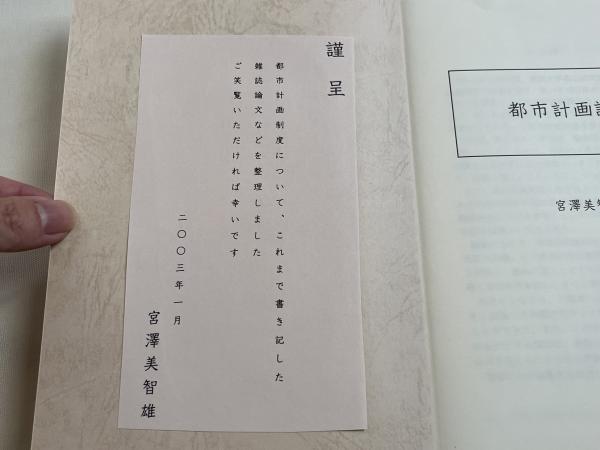 謹呈
都市計画制度について、これまで書き記した
雑誌論文などを整理しました
ご笑覧いただければ幸いです
二〇〇三年一月
宮澤美智雄
都市計画
宮澤美